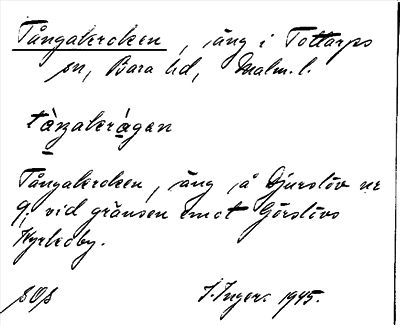 Tångakroken, äng i Tottarps
sn, Bara hd, Malm. l.
tàŋakrá̱gan
Tångakroken, äng å Djurslöv nr
9, vid gränsen emot Görslövs
Kyrkoby.
SOS I. Inger. 1945.